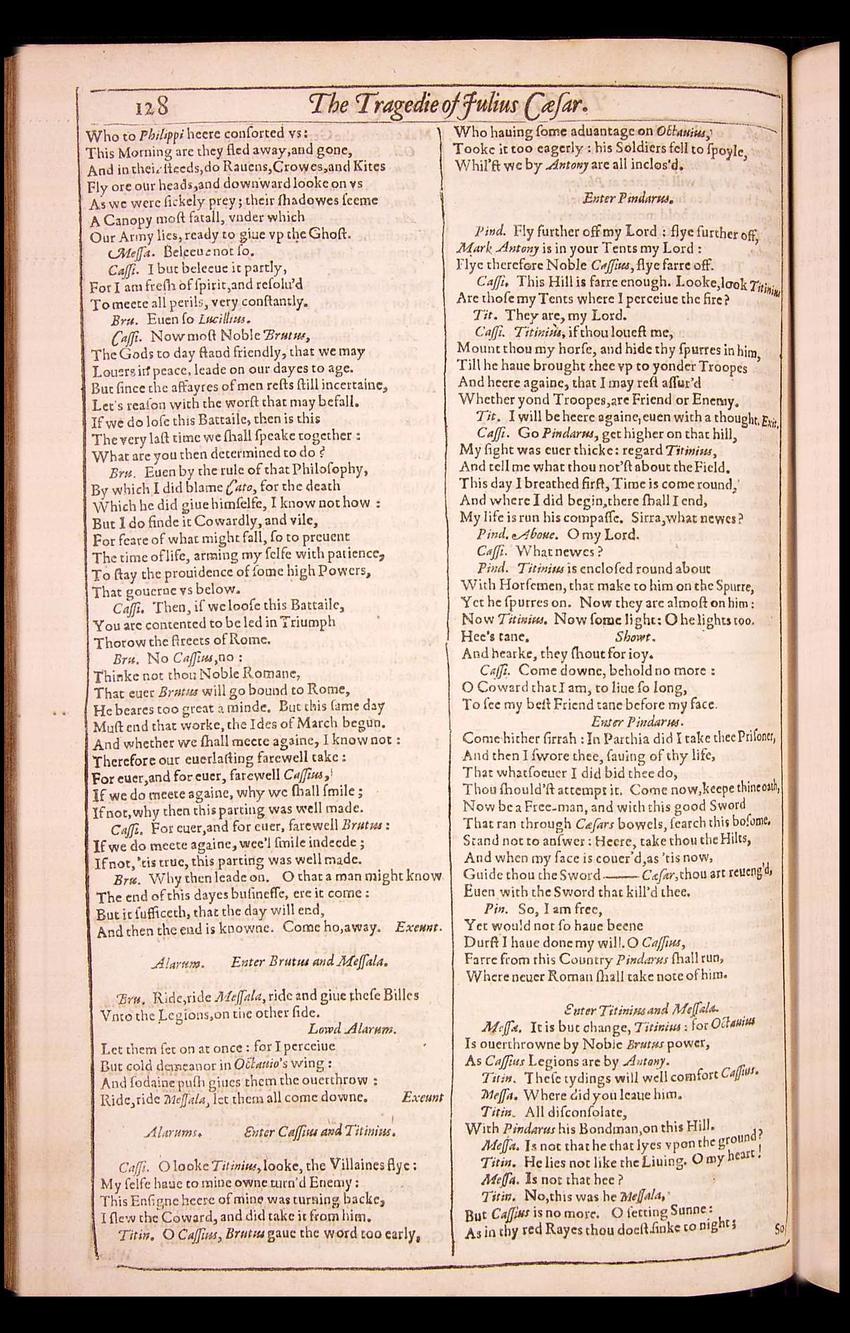 128
The Tragedie of Julius Cæſar.
Who to Philippi heere conſorted vs:
This Morning are they fled away, and gone,
And in their ſteeds, do Rauens, Crowes, and Kites
Fly ore our heads, and downward looke on vs
As we were ſickely prey; their ſhadowes ſeeme
A Canopy moſt fatall, vnder which
Our Army lies, ready to giue vp the Ghoſt.
Meſſa. Beleeue not ſo.
Caſſi. I but beleeue it partly,
For I am freſh of ſpirit, and reſolu'd
To meete all perils, very conſtantly.
Bru. Euen ſo Lucillius.
Caſſi. Now moſt Noble Brutus,
The Gods to day ſtand friendly, that we may
Louers in peace, leade on our dayes to age.
But ſince the affayres of men reſts ſtill incertaine,
Let's reaſon with the worſt that may befall.
If we do loſe this Battaile, then is this
The very laſt time we ſhall ſpeake together:
What are you then determined to do?
Bru. Euen by the rule of that Philoſophy,
By which I did blame Cato, for the death
Which he did giue himſelfe, I know not how:
But I do finde it Cowardly, and vile,
For feare of what might fall, ſo to preuent
The time of life, arming my ſelfe with patience,
To ſtay the prouidence of ſome high Powers,
That gouerne vs below.
Caſſi. Then, if we looſe this Battaile,
You are contented to be led in Triumph
Thorow the ſtreets of Rome.
Bru. No Caſſius, no:
Thinke not thou Noble Romane,
That euer Brutus will go bound to Rome,
He beares too great a minde. But this ſame day
Muſt end that worke, the Ides of March begun.
And whether we ſhall meete againe, I know not:
Therefore our euerlaſting farewell take:
For euer, and for euer, farewell Caſſius,
If we do meete againe, why we ſhall ſmile;
If not, why then this parting was well made.
Caſſi. For euer, and for euer, farewell Brutus:
If we do meete againe, wee'l ſmile indeede;
If not, 'tis true, this parting was well made.
Bru. Why then leade on. O that a man might know
The end of this dayes buſineſſe, ere it come:
But it ſufficeth, that the day will end,
And then the end is knowne. Come ho, away. Exeunt.
Alarum. Enter Brutus and Meſſala.
Bru. Ride, ride Meſſala, ride and giue theſe Billes
Vnto the Legions, on the other ſide.
Lowd Alarum.
Let them ſet on at once: for I perceiue
But cold demeanor in Octauio's wing:
And ſodaine puſh giues them the ouerthrow:
Ride, ride Meſſala, let them all come downe. Exeunt
Alarums. Enter Caſſius and Titinius.
Caſſi. O looke Titinius, looke, the Villaines flye:
My ſelfe haue to mine owne turn'd Enemy:
This Enſigne heere of mine was turning backe,
I ſlew the Coward, and did take it from him.
Titin. O Caſſius, Brutus gaue the word too early,
Who hauing ſome aduantage on Octauius,
Tooke it too eagerly: his Soldiers fell to ſpoyle,
Whil'ſt we by Antony are all inclos'd.
Enter Pindarus.
Pind. Fly further off my Lord: flye further off,
Mark Antony is in your Tents my Lord:
Flye therefore Noble Caſſius, flye farre off.
Caſſi. This Hill is farre enough. Looke, look Titinius
Are thoſe my Tents where I perceiue the fire?
Tit. They are, my Lord.
Caſſi. Titinius, if thou loueſt me,
Mount thou my horſe, and hide thy ſpurres in him,
Till he haue brought thee vp to yonder Troopes
And heere againe, that I may reſt aſſur'd
Whether yond Troopes, are Friend or Enemy.
Tit. I will be heere againe, euen with a thought. Exit.
Caſſi. Go Pindarus, get higher on that hill,
My ſight was euer thicke: regard Titinius,
And tell me what thou not'ſt about the Field.
This day I breathed firſt, Time is come round,
And where I did begin, there ſhall I end,
My life is run his compaſſe. Sirra, what newes?
Pind. Aboue. O my Lord.
Caſſi. What newes?
Pind. Titinius is encloſed round about
With Horſemen, that make to him on the Spurre,
Yet he ſpurres on. Now they are almoſt on him:
Now Titinius. Now ſome light: O he lights too.
Hee's tane. Showt.
And hearke, they ſhout for ioy.
Caſſi. Come downe, behold no more:
O Coward that I am, to liue ſo long,
To ſee my beſt Friend tane before my face.
Enter Pindarus.
Come hither ſirrah: In Parthia did I take thee Priſoner,
And then I ſwore thee, ſauing of thy life,
That whatſoeuer I did bid thee do,
Thou ſhould'ſt attempt it. Come now, keepe thine oath,
Now be a Free-man, and with this good Sword
That ran through Cæſars bowels, ſearch this boſome.
Stand not to anſwer: Heere, take thou the Hilts,
And when my face is couer'd, as 'tis now,
Guide thou the Sword —— Cæſar, thou art reueng'd,
Euen with the Sword that kill'd thee.
Pin. So, I am free,
Yet would not ſo haue beene
Durſt I haue done my will. O Caſſius,
Farre from this Country Pindarus ſhall run,
Where neuer Roman ſhall take note of him.
Enter Titinius and Meſſala.
Meſſa. It is but change, Titinius: for Octauius
Is ouerthrowne by Noble Brutus power,
As Caſſius Legions are by Antony.
Titin. Theſe tydings will well comfort Caſſius.
Meſſa. Where did you leaue him.
Titin. All diſconſolate,
With Pindarus his Bondman, on this Hill.
Meſſa. Is not that he that lyes vpon the ground?
Titin. He lies not like the Liuing. O my heart!
Meſſa. Is not that hee?
Titin. No, this was he Meſſala,
But Caſſius is no more. O ſetting Sunne:
As in thy red Rayes thou doeſt ſinke to night;
So